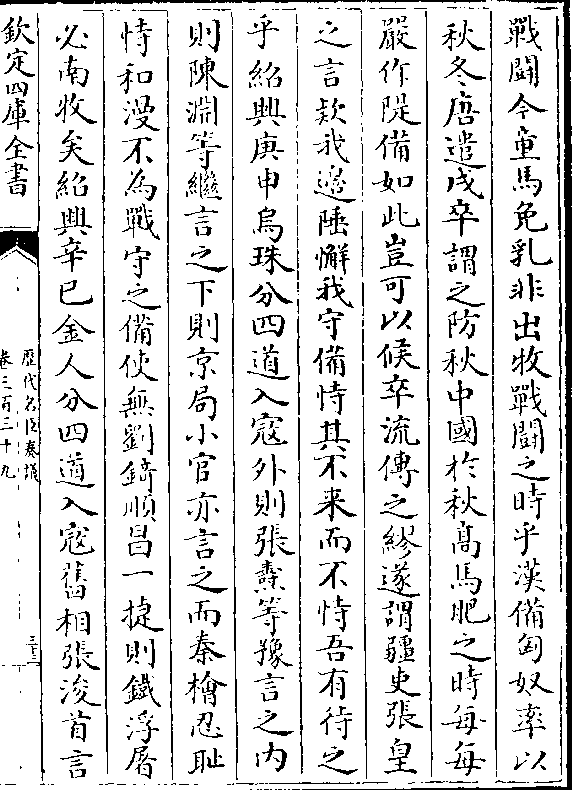 戰鬬今童馬免乳非出牧戰鬬之時乎漢備匈奴率以
秋冬唐遣戍卒謂之防秋中國於秋髙馬肥之時每每
嚴作隄備如此豈可以候卒流傳之繆遂謂疆吏張皇
之言欵我邉陲懈我守備恃其不来而不恃吾有待之
乎紹興庚申烏珠分四道入寇外則張燾等豫言之内
則陳淵等繼言之下則京局小官亦言之而秦檜忍恥
恃和漫不為戰守之備使無劉錡順昌一捷則鐵浮屠
必南牧矣紹興辛巳金人分四道入寇舊相張浚首言
欽定四庫全書
歴代名臣奏議
卷三百三十九
三十二